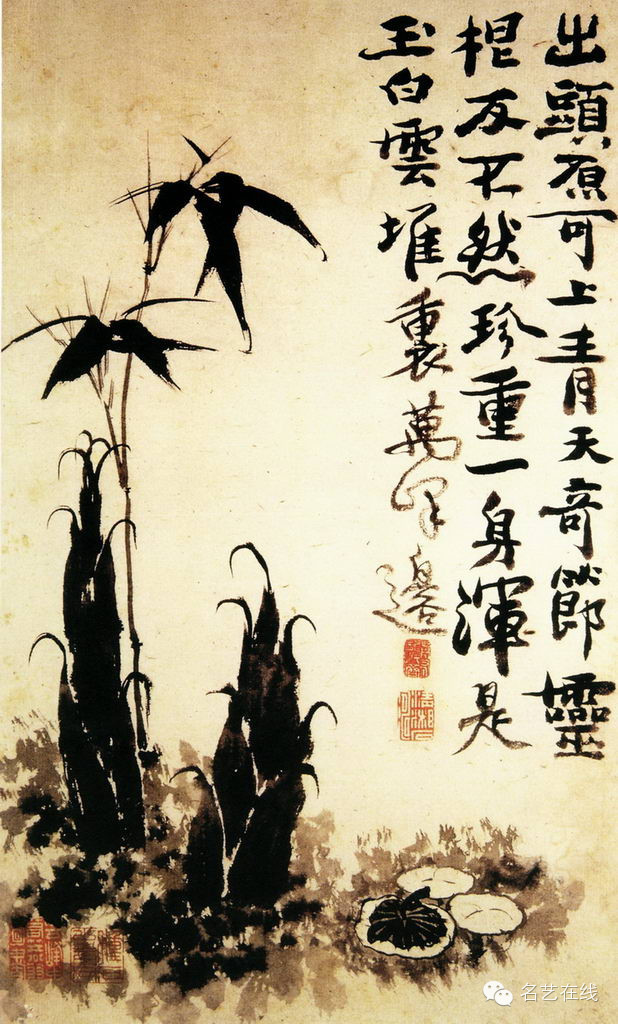 出頭原可上青天奇節靈
根反不然珍重一身渾是
玉白雲堆裏萬峯邊
名艺在线